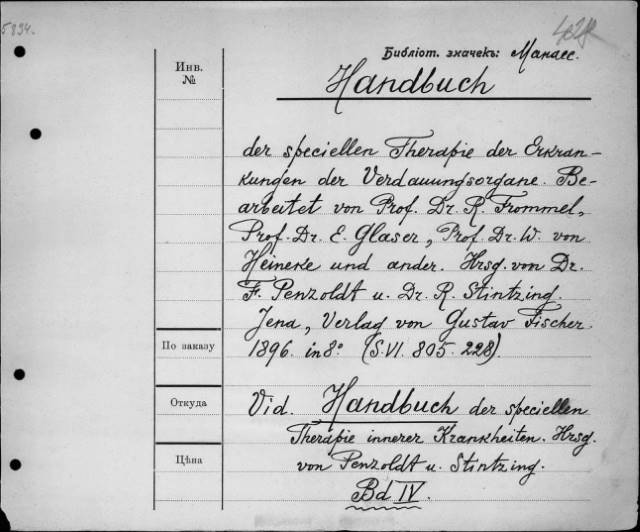 5894.
Библіот. значекъ: Манасс.
Инв.
№
Handbuch
der speciellen Therapie der Erkran-
kungen der Verdauungsorgane. Be-
arbeitet von Prof. Dr. R. Frommel,
Prof. Dr. E. Glaser, Prof. Dr. W. von
Heineke und ander. Hrsg. von Dr.
F. Penzoldt u. Dr. R. Stintzing.
Jena, Verlag von Gustav Fischer.
1896. in 8° (S. VI. 805. 228).
По заказу
Откуда
Цѣна
Vid. Handbuch der speciellen
Therapie innerer Krankheiten. Hrsg.
von Penzoldt u. Stintzing.
Bd IV.